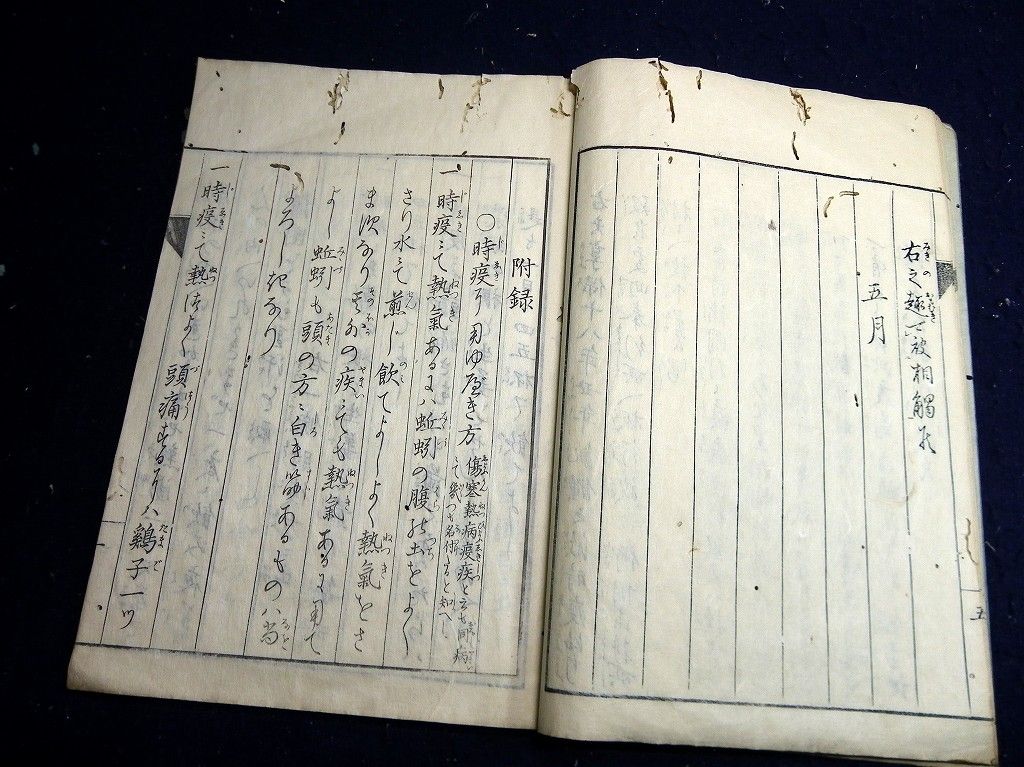 右之趣可被相觸候
五月
五
附録
○時疫に用ゆべき方 傷寒熱病疫疾と云も同病
にて幾つも名付有と知へし
一時疫にて熱氣あるにハ蚯蚓の腹の土をよく
さり水にて煎し飲てよしよく熱氣をさ
ま
なりその外の疾にても熱氣あるに用て
よし蚯蚓も頭の方に白き筋あるものハ
よろしきなり
一時疫にて熱つよく頭痛するにハ鷄子一ツ